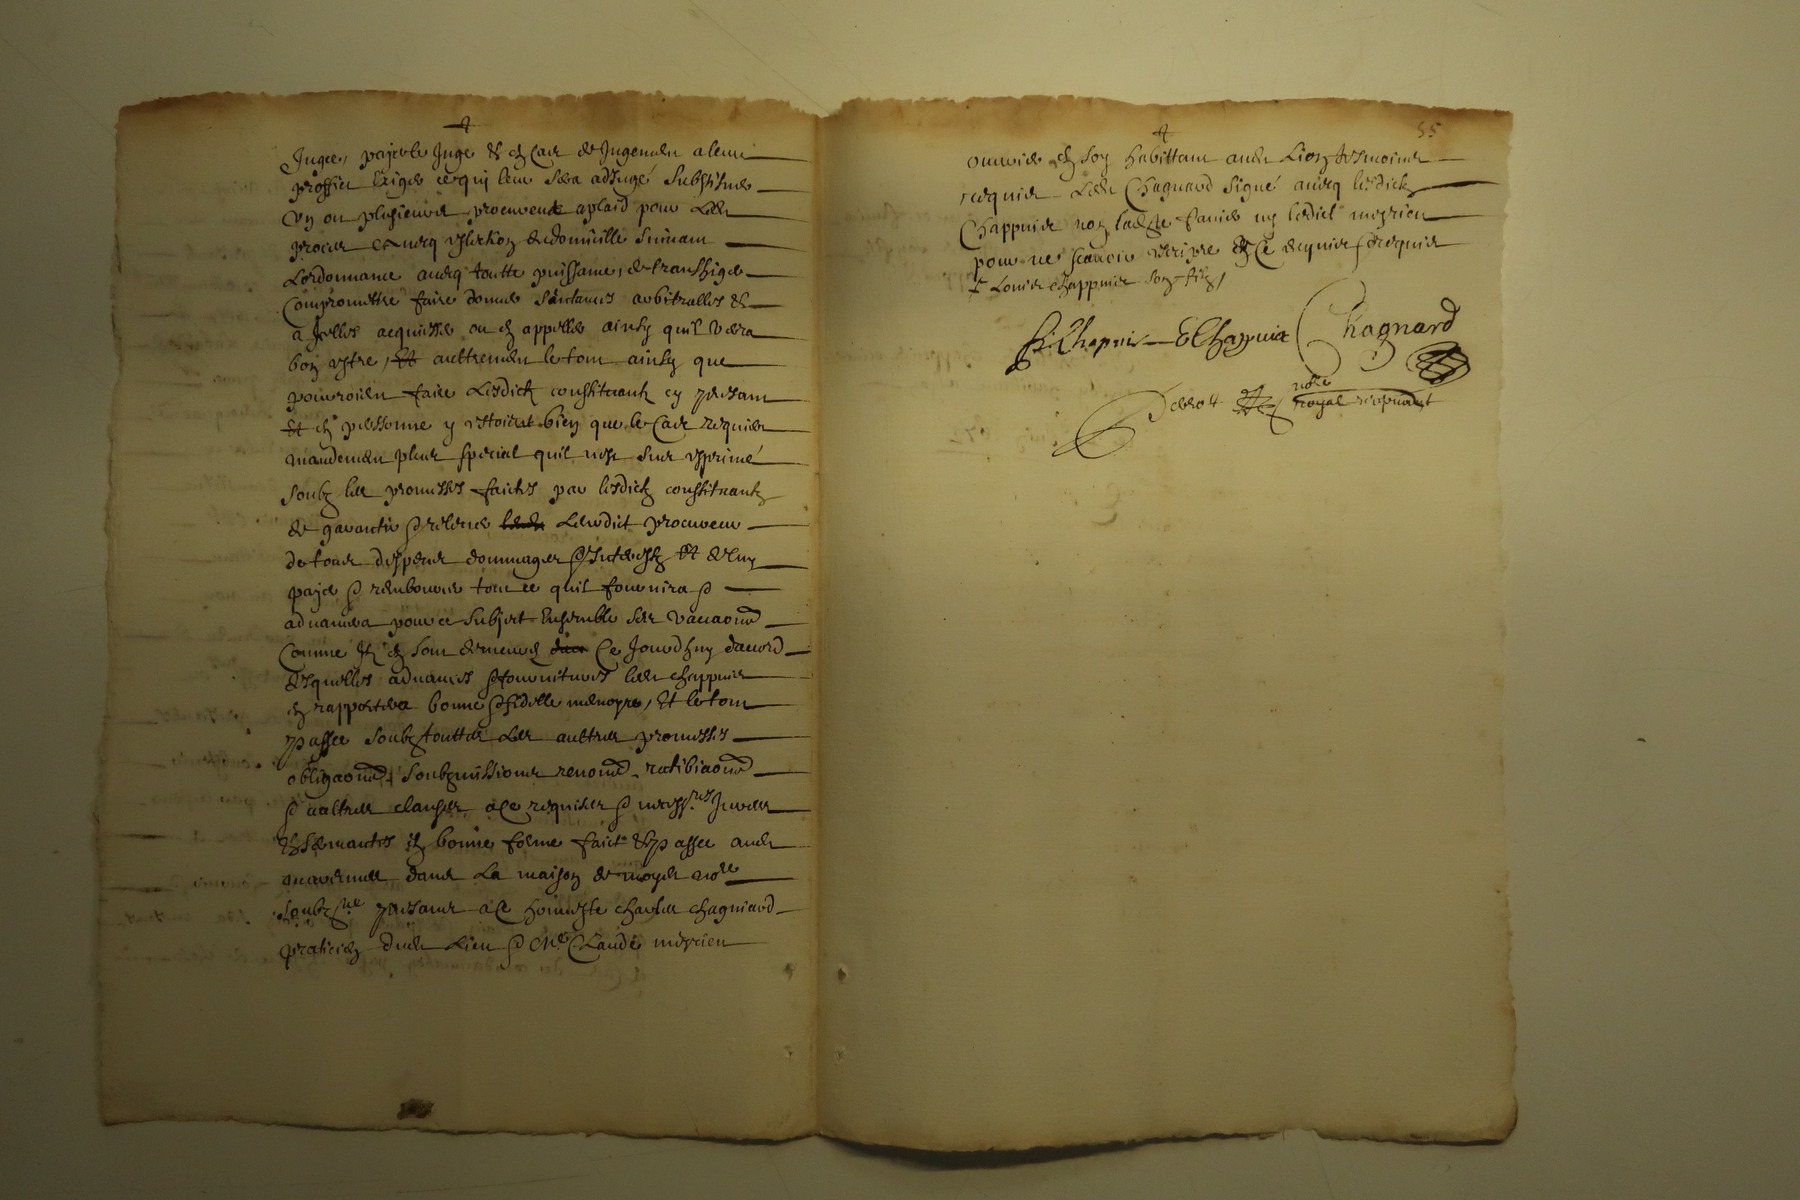 Juger, payer le Juge & en Cas de Jugement a leur
proffict Exiger ce qui leur sera adJugé Substituer
Un ou plusieurs procureurs a plaid pour
avecq Election de domicille suivant
Lordonnance avecq toutte puissance, de transhiger
Compromettre faire donner Santances arbitralles &
a Jcelles acquiesser ou en appeller ainsy quil verra
bon estre, autrement le tout ainsy que
pourroient faire Lesdictz constituantz cy presant
en personne y estoient bien que le Cas requier
mandement plus special quil nest sus exprimé
Soubz les promesses faictes par lesdictz constituantz
de garantir & relever Leurdict procureur
de tous despens dommages & Interestz Et de luy
payer & rembourcer tout ce quil fournira &
advancera pour ce subject Ensemble ses vacaons
Comme Jlz en sont demeurés Ce Jourdhuy daccord
desquelles advances & fournitures led chappuis
en rapportera bonne & fidelle memoyre, Et le tout
passer Soubz touttes Les auttres promesses
obligaons, Soubzmissions renons ratibiaons
& aultres clauses a Ce requises & necess.res Jurees
en bonne forme faict & passer aud
dans La maison de moyd no.re
soubz.ne presant a Ce honneste charles chagniard
praticien dud Lieu & Me Claude meyrieu
ouvrier en soy habittant aud Lion tesmoins
requis Led Chagnard signé avecq lesdictz
Chappuis non ny ledict meyrieu
pour ne scavoir escripre de Ce enquis & requis
& Louis chappuis son filz,
Chapuis EChappuis Chagnard
no.re
royal recepvant